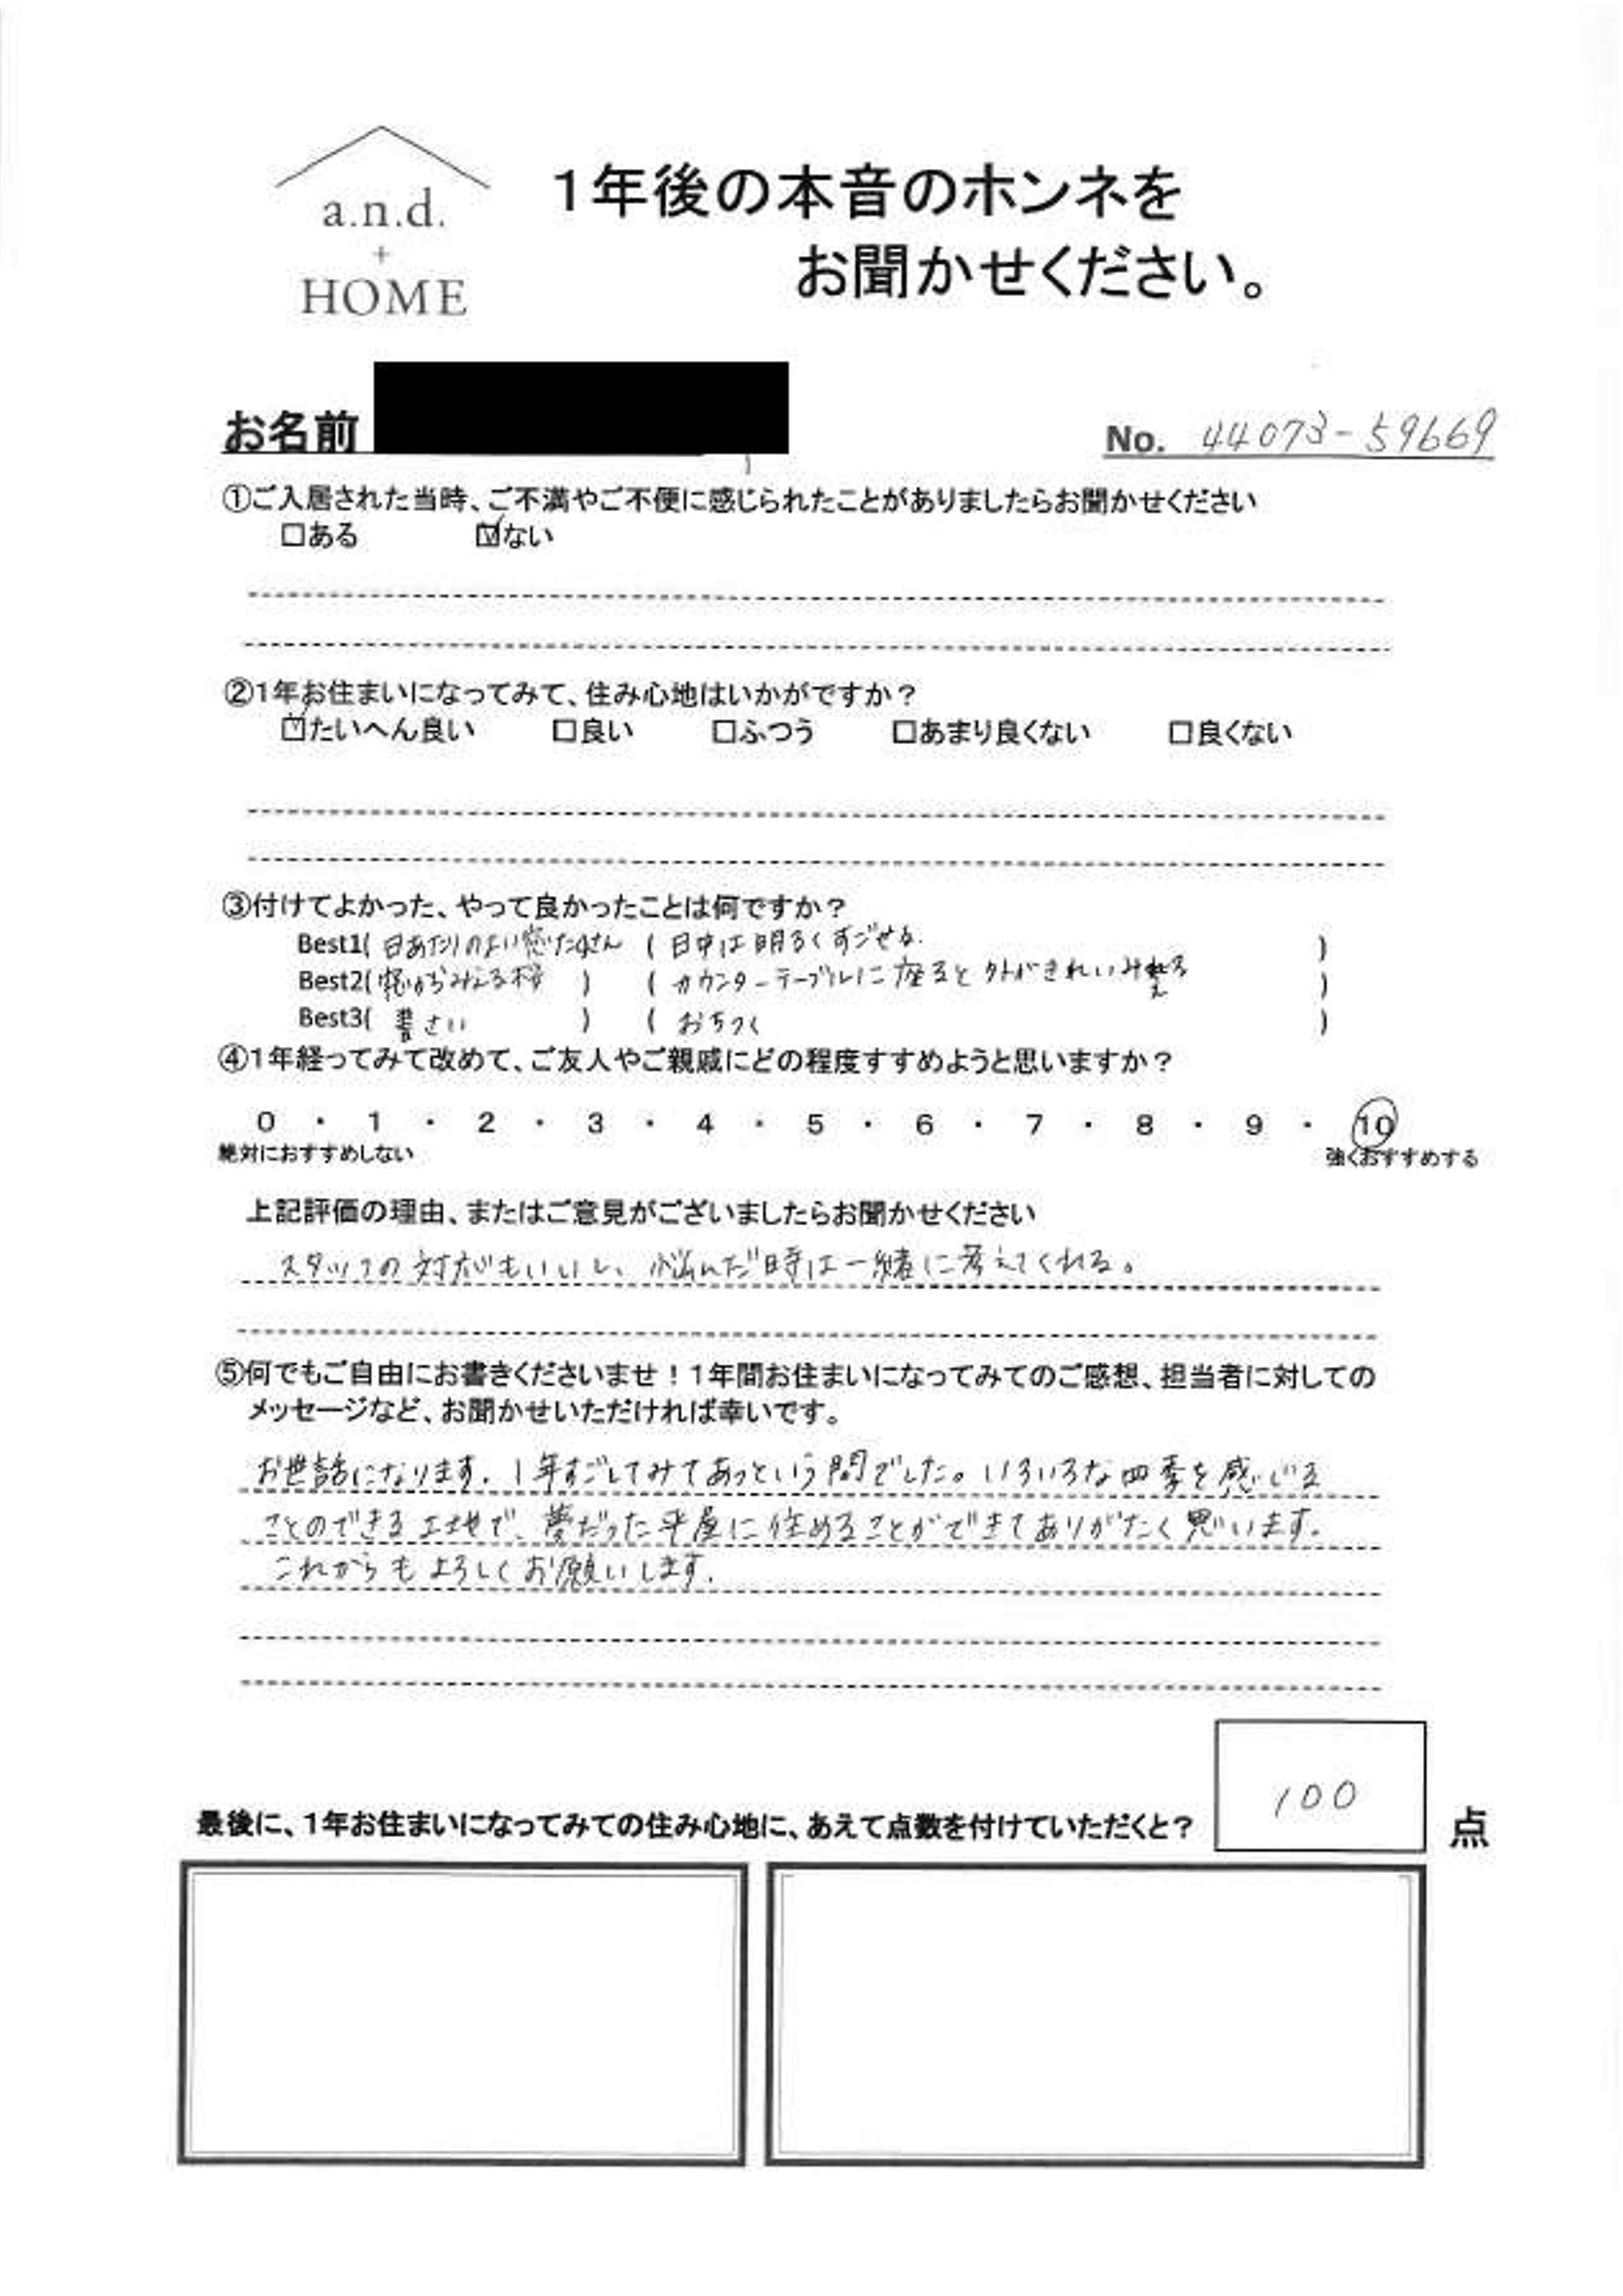 a.n.d.
+
HOME
１年後の本音のホンネを
お聞かせください。
お名前
No. 44073-59669
①ご入居された当時、ご不満やご不便に感じられたことがありましたらお聞かせください
□ある ☑ない
②１年お住まいになってみて、住み心地はいかがですか？
☑たいへん良い □良い □ふつう □あまり良くない □良くない
③付けてよかった、やって良かったことは何ですか？
Best1( 日あたりのよい窓たくさん ( 日中は明るくすごせる. )
Best2( 窓からみえる桜 ) ( カウンターテーブルに座ると外がきれいみえる )
Best3( 書さい ) ( おちつく )
④１年経ってみて改めて、ご友人やご親戚にどの程度すすめようと思いますか？
0 ・ 1 ・ 2 ・ 3 ・ 4 ・ 5 ・ 6 ・ 7 ・ 8 ・ 9 ・ 10
絶対におすすめしない 強くおすすめする
上記評価の理由、またはご意見がございましたらお聞かせください
スタッフの対応もいいし、悩んだ時は一緒に考えてくれる。
⑤何でもご自由にお書きくださいませ！１年間お住まいになってみてのご感想、担当者に対しての
メッセージなど、お聞かせいただければ幸いです。
お世話になります. 1年すごしてみてあっという間でした。いろいろな四季を感じる
ことのできる土地で、夢だった平屋に住めることができてありがたく思います.
これからもよろしくお願いします.
100
最後に、１年お住まいになってみての住み心地に、あえて点数を付けていただくと？ 点